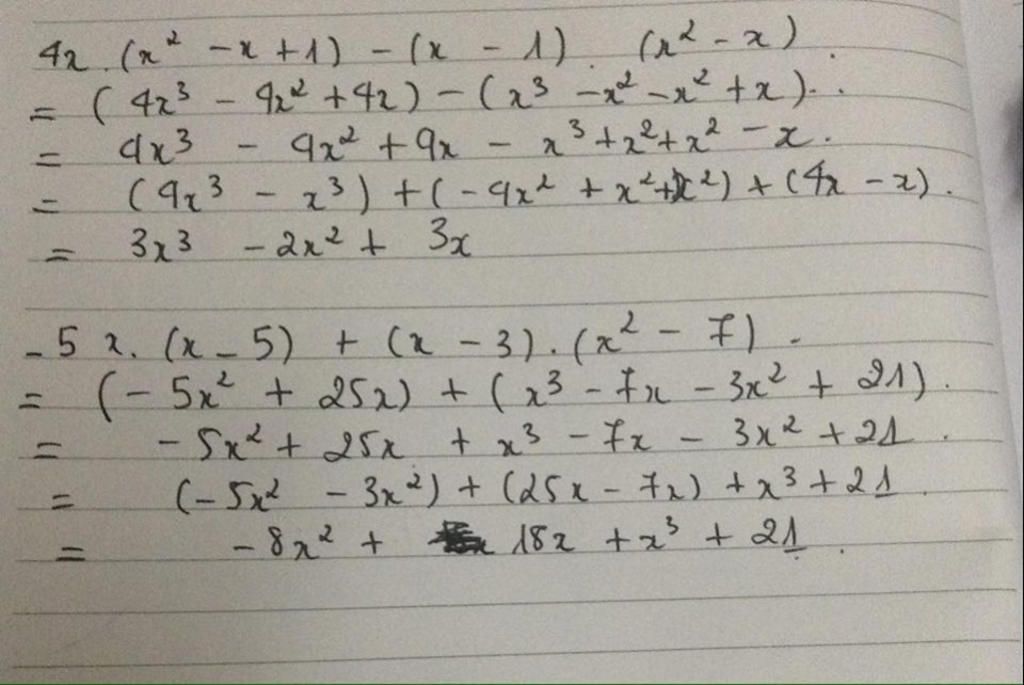 4x. (x² - x + 1) - (x - 1). (x² - x).
= (4x³ - 4x² + 4x) - (x³ - x² - x² + x)..
= 4x³ - 4x² + 4x - x³ + x² + x² - x.
= (4x³ - x³) + (- 4x² + x² + x²) + (4x - x).
= 3x³ - 2x² + 3x
- 5 x. (x - 5) + (x - 3). (x² - 7) -
= (- 5x² + 25x) + (x³ - 7x - 3x² + 21).
= - 5x² + 25x + x³ - 7x - 3x² + 21.
= (- 5x² - 3x²) + (25x - 7x) + x³ + 21.
= - 8x² + 18x + x³ + 21.